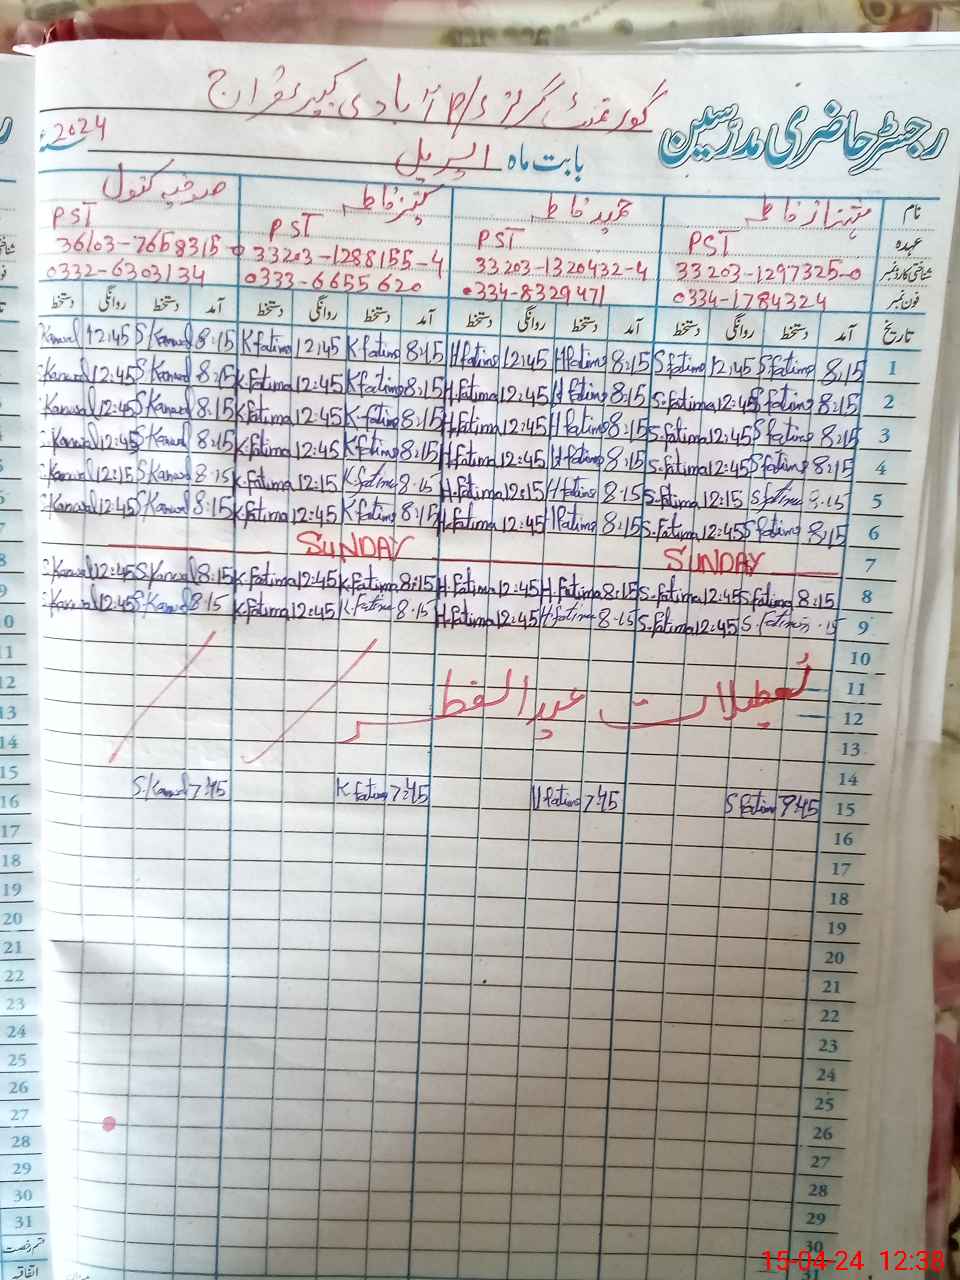 رجسٹر حاضری مدرسین
گورنمنٹ گرلز پ/س آبادی
بابت ماہ اپریل 2024ء
نام فاطمہ فاطمہ کنیز فاطمہ کنول
عہدہ PST PST PST PST
شناختی کارڈ نمبر 33203-1297325-0 33203-1320432-4 33203-1288155-4 36103-7658315
فون نمبر 0334-1784324 0334-8329471 0333-6655620 0332-6303134
تاریخ آمد دستخط روانگی دستخط آمد دستخط روانگی دستخط آمد دستخط روانگی دستخط آمد دستخط روانگی دستخط
1 8:15 S fatima 12:45 S fatima 8:15 H fatima 12:45 H fatima 8:15 K fatima 12:45 K fatima 8:15 S Kanwal 12:45 Kanwal
2 8:15 S fatima 12:45 S. Fatima 8:15 H fatima 12:45 H. Fatima 8:15 K fatima 12:45 K. Fatima 8:15 S Kanwal 12:45 Kanwal
3 8:15 S fatima 12:45 S. Fatima 8:15 H fatima 12:45 H. Fatima 8:15 K fatima 12:45 K. Fatima 8:15 S Kanwal 12:45 Kanwal
4 8:15 S fatima 12:45 S. Fatima 8:15 H fatima 12:45 H. Fatima 8:15 K fatima 12:45 K. Fatima 8:15 S Kanwal 12:45 Kanwal
5 8:15 S fatima 12:15 S. Fatima 8:15 H fatima 12:15 H. Fatima 8:15 K fatima 12:15 K. Fatima 8:15 S Kanwal 12:15 Kanwal
6 8:15 S fatima 12:45 S. Fatima 8:15 H fatima 12:45 H. Fatima 8:15 K fatima 12:45 K. Fatima 8:15 S Kanwal 12:45 Kanwal
7 SUNDAY SUNDAY
8 8:15 S. fatima 12:45 S. Fatima 8:15 H. Fatima 12:45 H. Fatima 8:15 K. Fatima 12:45 K. Fatima 8:15 S Kanwal 12:45 Kanwal
9 :15 S. fatima 12:45 S. Fatima 8:15 H fatima 12:45 H. Fatima 8:15 K fatima 12:45 K. Fatima 8:15 S Kanwal 12:45 Kanwal
10
11 تعطیلات عید الفطر
12
13
14
15 7:45 S fatima 7:45 H fatima 7:45 K fatima 7:45 S. Kanwal
16
17
18
19
20
21
22
23
24
25
26
27
28
29
30
15-04-24 12:38
11
12
13
14
15
16
17
18
19
20
21
22
23
24
25
26
27
28
29
30
31
اتفاقیہ